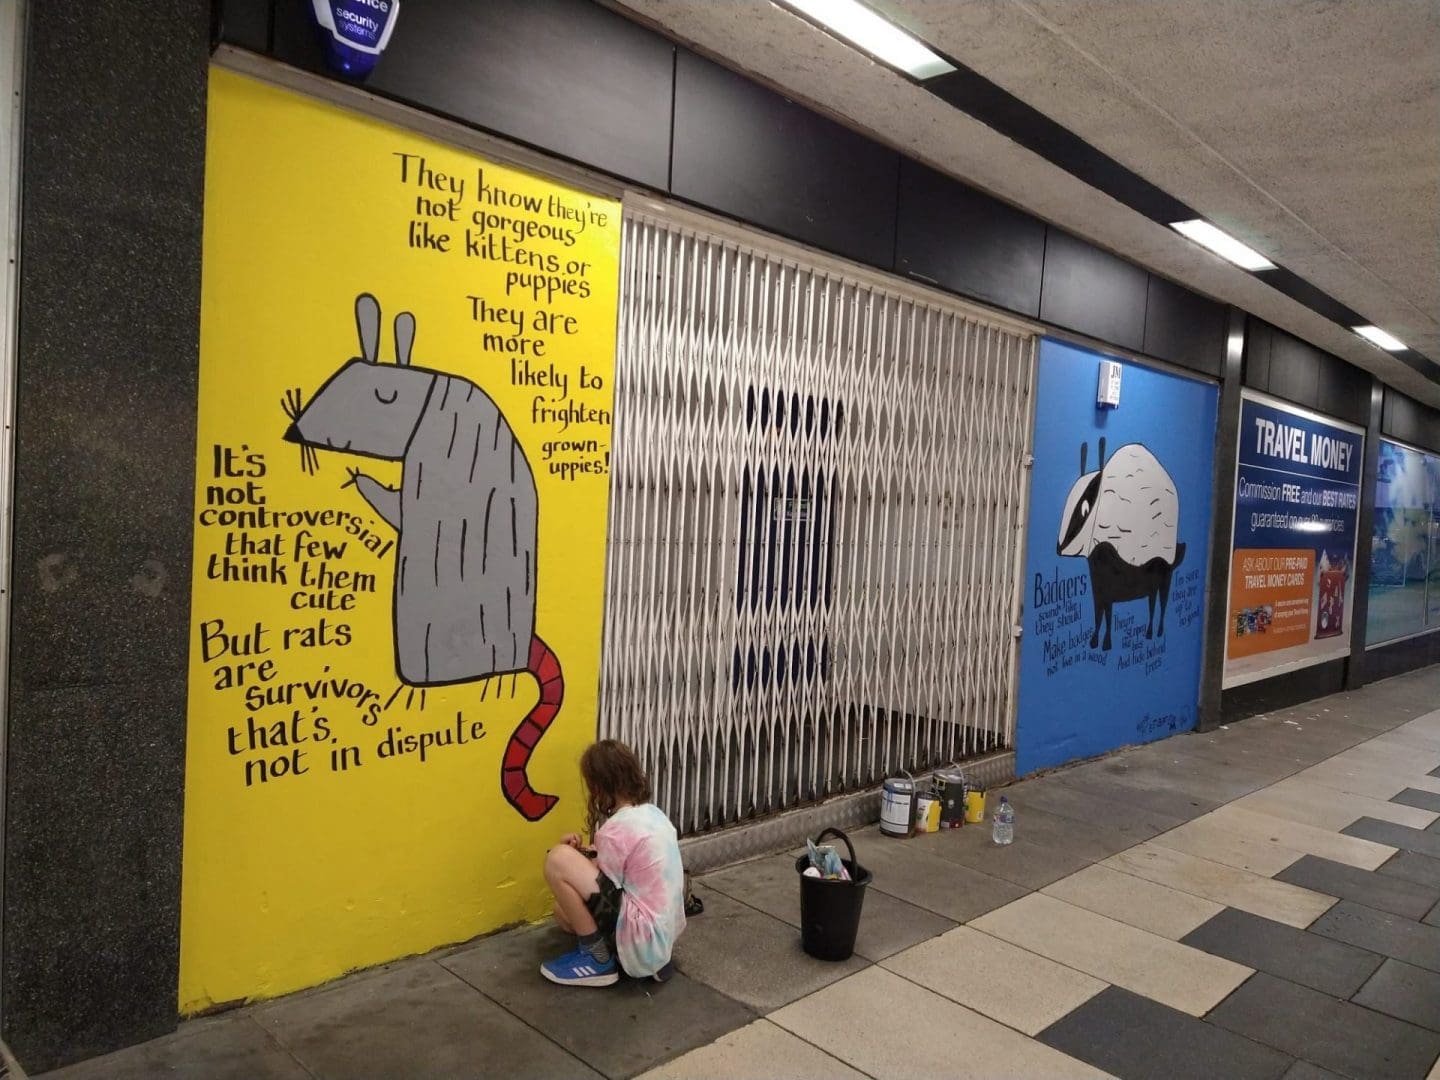 security
systems
They know they're
not gorgeous
like kittens or
puppies
They are
more
likely to
frighten
grown-
uppies!
It's
not
controversial
that few
think them
cute
But rats
are
survivors
that's
not in dispute
Badgers
sound like
they should
Make badges
not live in a wood
They're
stripey
like
And hide behind
trees
I'm sure
they are
up to
no good
JM
TRAVEL MONEY
Commission FREE and our BEST RATES
guaranteed on over
ASK ABOUT OUR PRE-PAID
TRAVEL MONEY CARDS